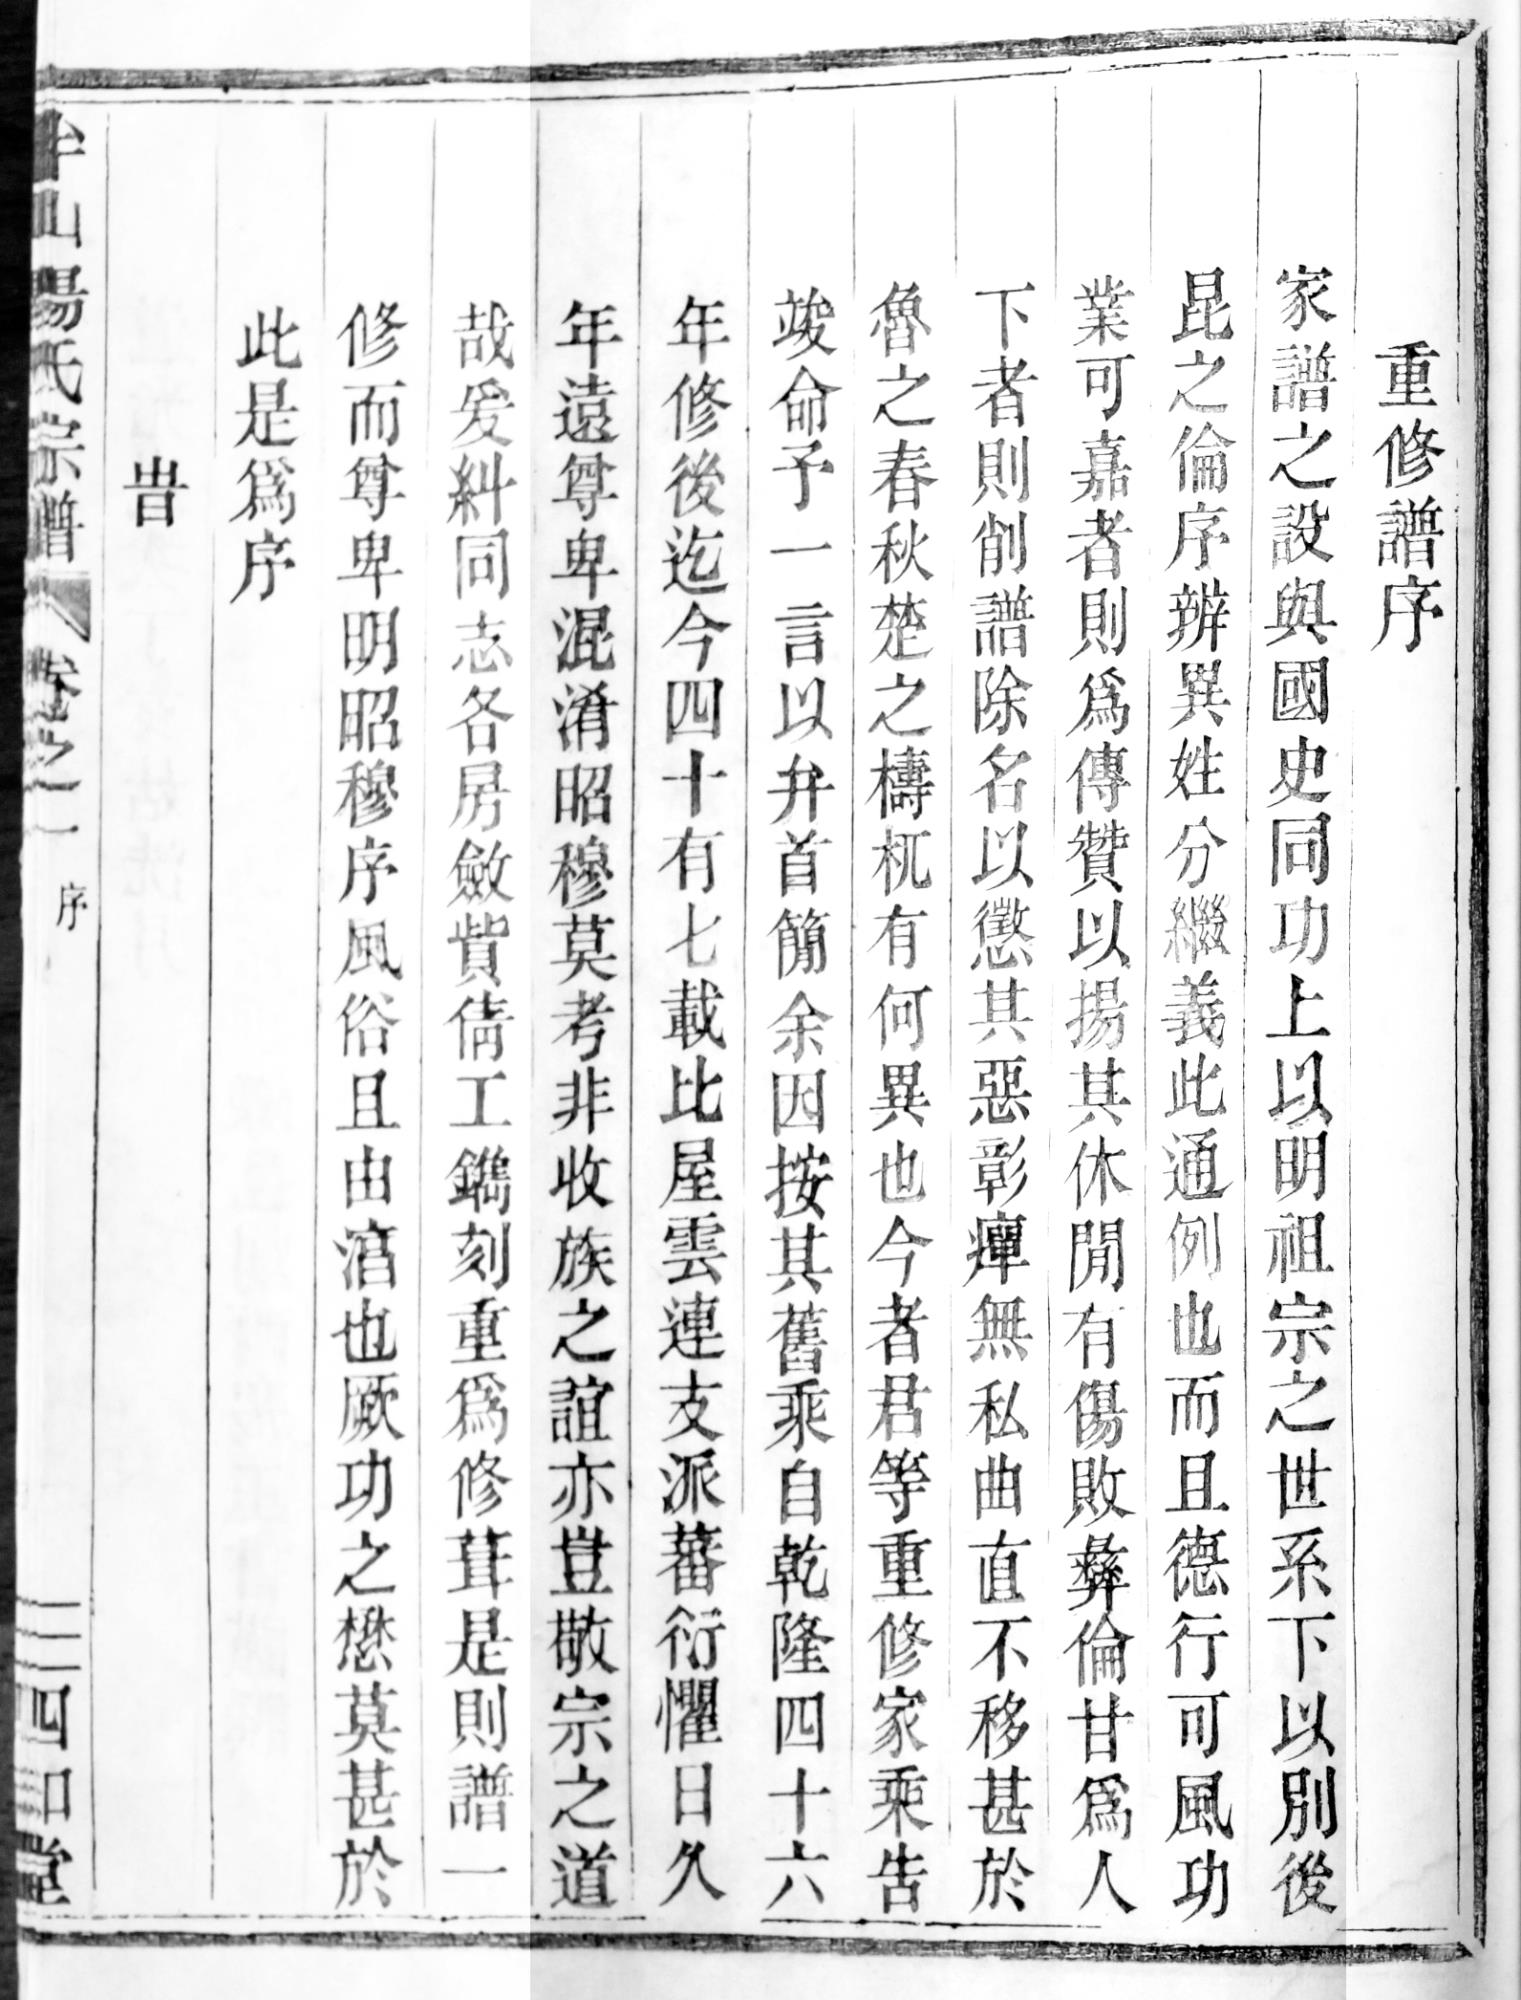 重修譜序
家譜之設與國史同功上以明祖宗之世系下以別後
昆之倫序辨異姓分繼義此通例也而且德行可風功
業可嘉者則爲傳贊以揚其休閒有傷敗彝倫甘爲人
下者則削譜除名以懲其惡彰癉無私曲直不移甚於
魯之春秋楚之檮杌有何異也今者君等重修家乘告
竣命予一言以弁首簡余因按其舊乘自乾隆四十六
年修後迄今四十有七載比屋雲連支派蕃衍懼日久
年遠尊卑混淆昭穆莫考非收族之誼亦豈敬宗之道
哉爰糾同志各房斂貲倩工鐫刻重爲修葺是則譜一
修而尊卑明昭穆序風俗且由濇也厥功之懋莫甚於
此是爲序
旹
山陽氏宗譜 卷之一 序 四知堂